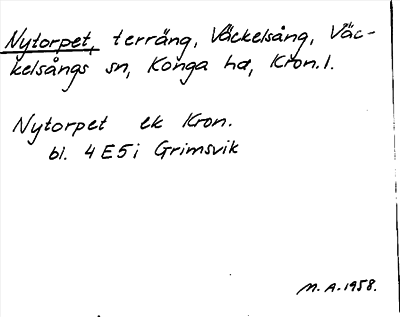 Nytorpet, terräng, Väckelsång, Väc-
kelsångs sn, Konga hd, Kron.l.
Nytorpet ek Kron.
bl. 4E5i Grimsvik
M.A.1958.